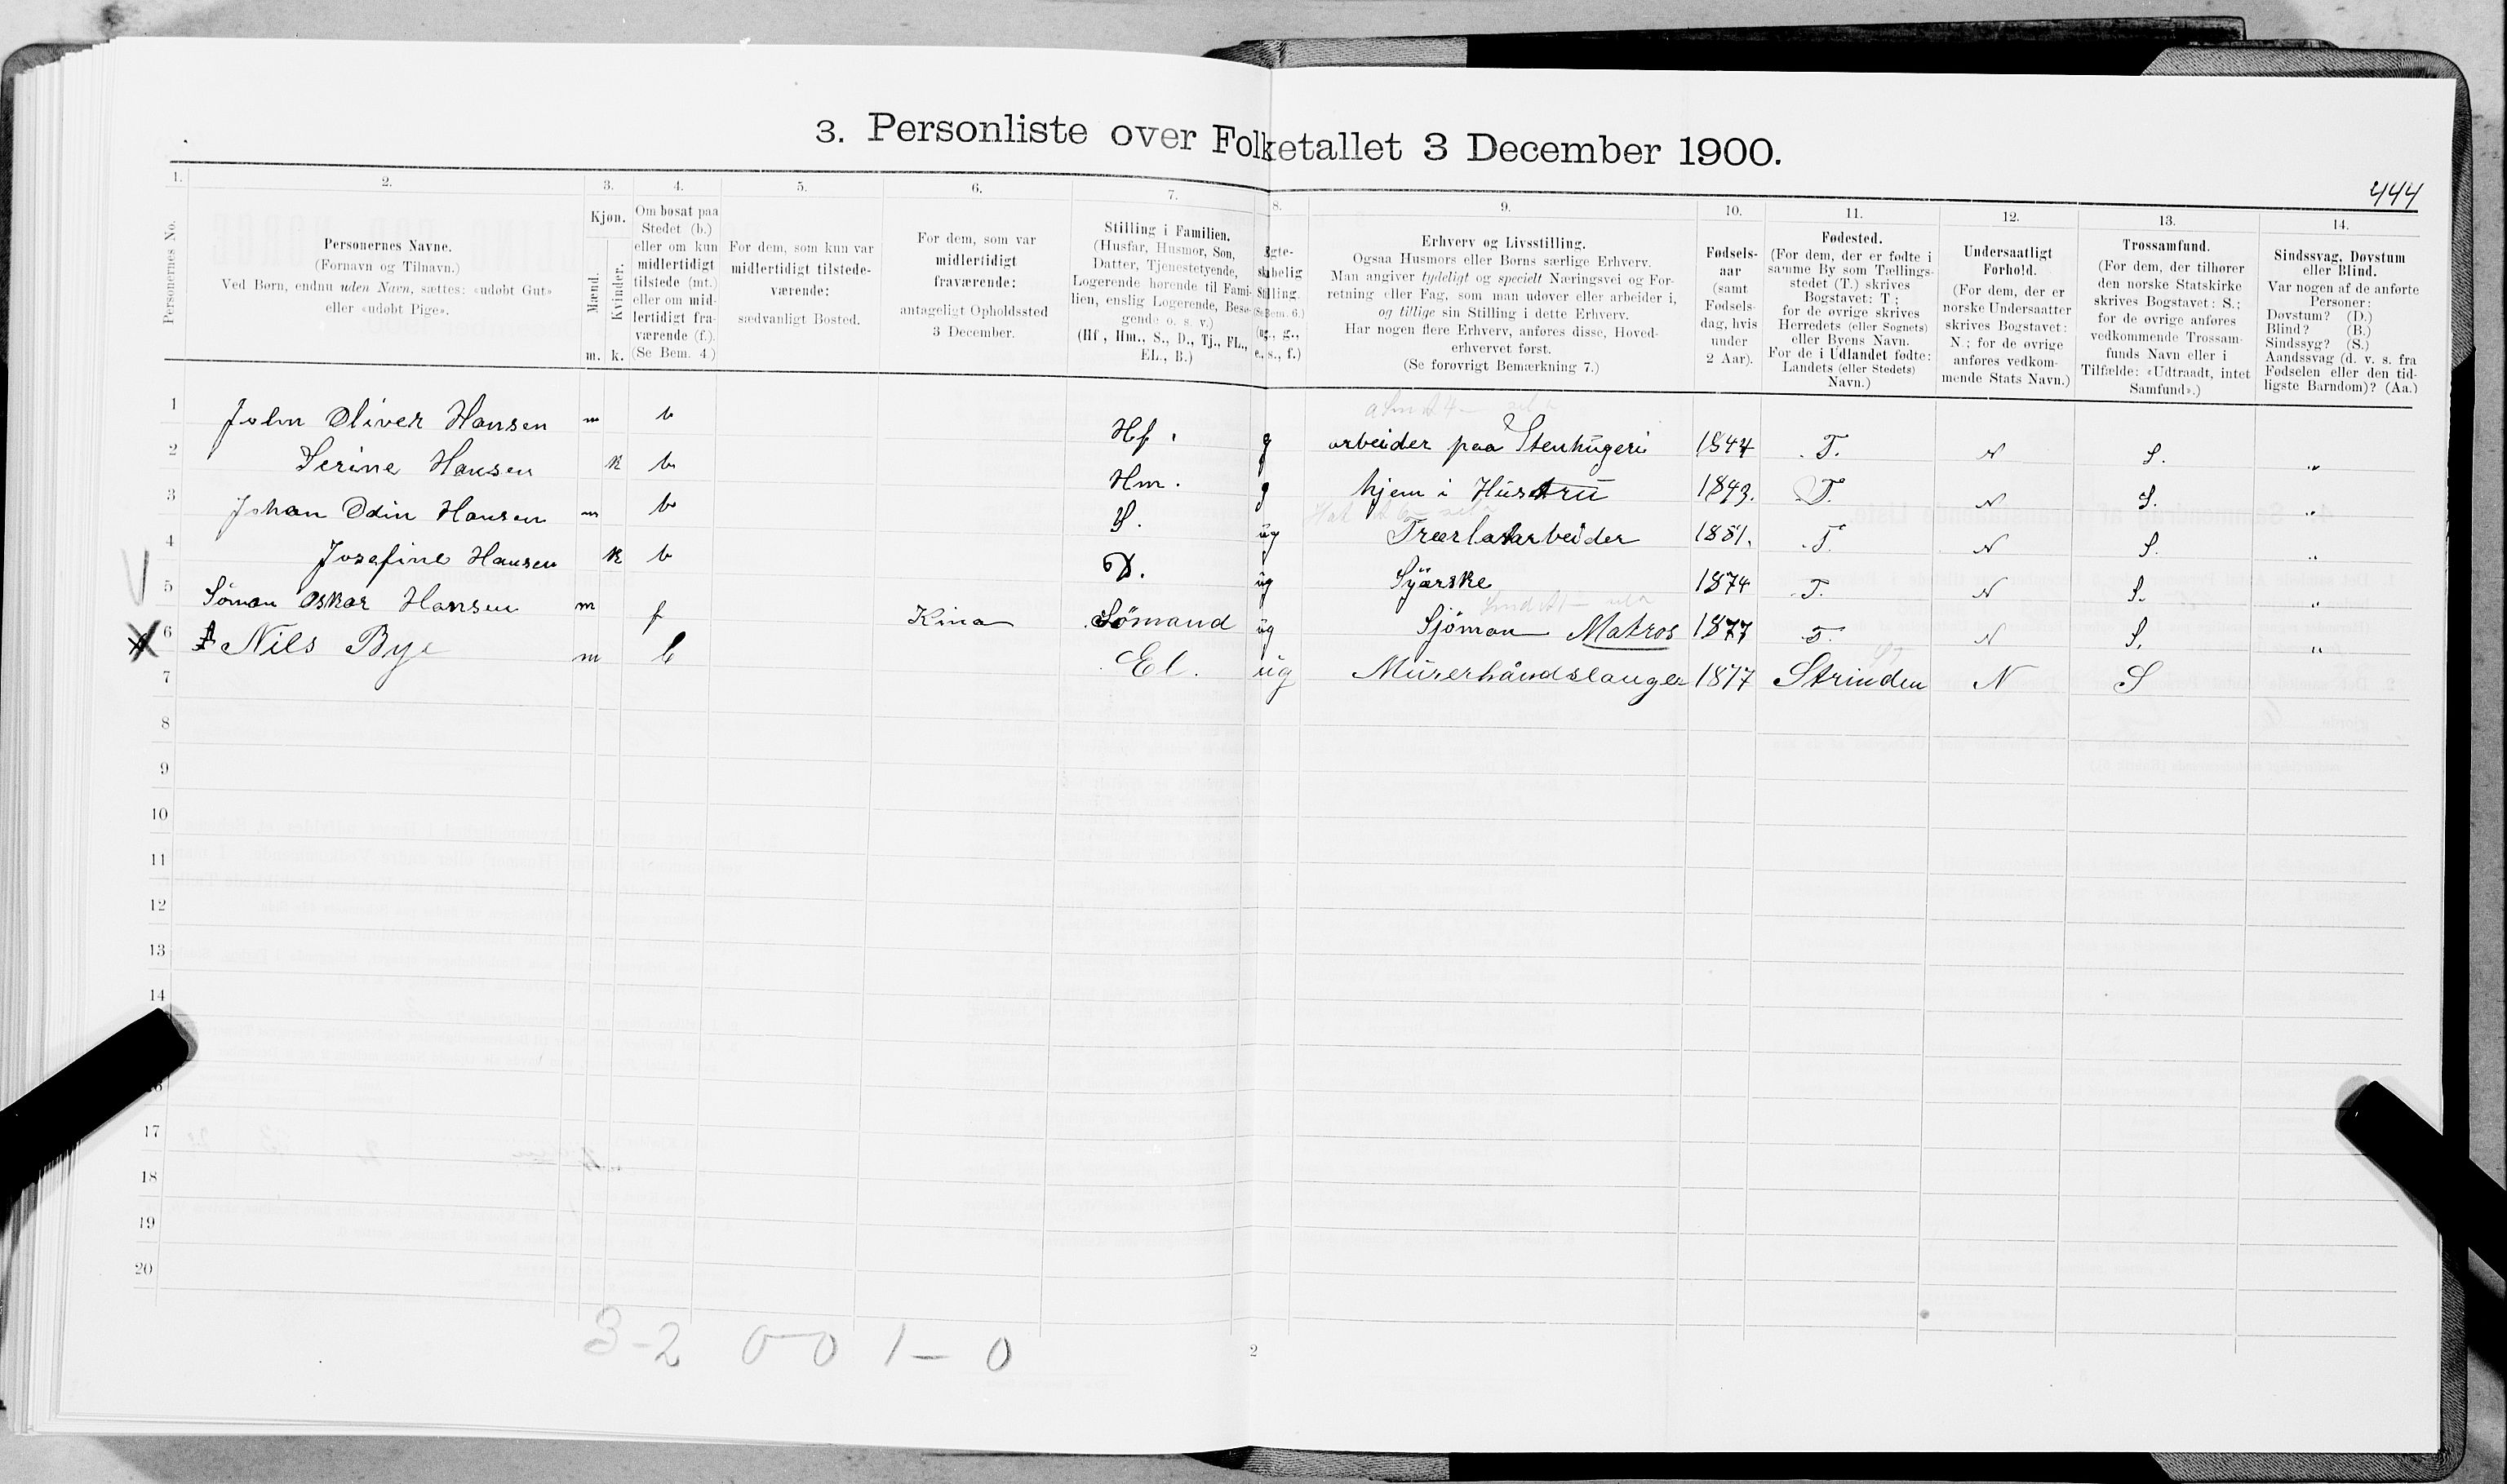 3. Personliste over Folketallet 3 December 1900.
444
1. 2. 3. 4. 5. 6. 7. 8. 9. 10. 11. 12. 13. 14.
Personernes No.
Personernes Navne.
(Fornavn og Tilnavn.)
Ved Børn, endnu uden Navn, sættes: «udøbt Gut»
eller «udøbt Pige».
Kjøn.
Mænd.
Kvinder.
m. k.
Om bosat paa
Stedet (b.)
eller om kun
midlertidigt
tilstede (mt.)
eller om mid-
lertidigt fra-
værende (f.).
(Se Bem. 4.)
For dem, som kun var
midlertidigt tilstede-
værende:
sædvanligt Bosted.
For dem, som var
midlertidigt
fraværende:
antageligt Opholdssted
3 December.
Stilling i Familien.
(Husfar, Husmor, Søn,
Datter, Tjenestetyende,
Logerende hørende til Fami-
lien, enslig Logerende, Besø-
gende o. s. v.)
(Hf., Hm., S., D., Tj., FL.,
EL., B.)
Ægte-
skabelig
Stilling.
(Se Bem. 6.)
(ug., g.,
e., s., f.)
Erhverv og Livsstilling.
Ogsaa Husmors eller Børns særlige Erhverv.
Man angiver tydeligt og specielt Næringsvei og For-
retning eller Fag, som man udøver eller arbeider i,
og tillige sin Stilling i dette Erhverv.
Har nogen flere Erhverv, anføres disse, Hoved-
erhvervet først.
(Se forøvrigt Bemærkning 7.)
Fødsels-
aar
(samt
Fødsels-
dag, hvis
under
2 Aar).
Fødested.
(For dem, der er fødte i
samme By som Tællings-
stedet (T.) skrives
Bogstavet: T;
for de øvrige skrives
Herredets (eller Sognets)
eller Byens Navn.
For de i Udlandet fødte:
Landets (eller Stedets)
Navn.)
Undersaatligt
Forhold.
(For dem, der er
norske Undersaatter
skrives Bogstavet:
N.; for de øvrige
anføres vedkom-
mende Stats Navn.)
Trossamfund.
(For dem, der tilhører
den norske Statskirke
skrives Bogstavet: S.;
for de øvrige anføres
vedkommende Trossam-
funds Navn eller i
Tilfælde: «Udtraadt, intet
Samfund».)
Sindssvag, Døvstum
eller Blind.
Var nogen af de anførte
Personer:
Døvstum? (D.)
Blind? (B.)
Sindssyg? (S.)
Aandssvag (d. v. s. fra
Fødselen eller den tid-
ligste Barndom)? (Aa.)
1 John Oliver Hansen m b Hf. g arbeider paa Stenhugeri 1844 T. N S. "
2 Serine Hansen k b Hm. g hjem i Hustru 1843. T. N S. "
3 Johan Odin Hansen m b S. ug Trælastarbeider 1881. T. N S. "
4 Josefine Hansen k b D. ug Syærske 1874 T. N S. "
5 Söman Oskar Hansen m f Kina Sömand ug Sjöman Matros 1877 T. N S. "
6 Nils Bye m b El. ug Murerhåndslanger 1877 Strinden N S
7
8
9
10
11
12
13
14
17
18
19
20
3-2 0-0 1-0
2